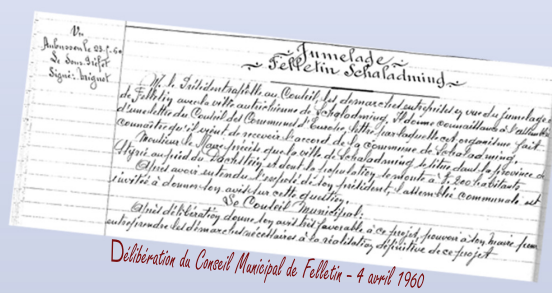 Vu
Aubusson le 23-5-60
Le Sous-Préfet
Signé:
Jumelade
Felletin Schaladming
M. le Président rappelle au Conseil les démarches entreprises en vue du jumelage
de Felletin avec la ville autrichienne de Schaladming. Il donne connaissance à l'assemblée
d'une lettre du Conseil des Communes d'Europe, lettre par laquelle cet organisme fait
connaître qu'il vient de recevoir l'accord de la commune de Schaladming.
Monsieur le Maire précise que la ville de Schaladming, située dans la province de
Styrie au pied du Dachstein et dont la population se monte à 3.200 habitants
Après avoir entendu l'exposé de son président, l'assemblée communale est
invitée à donner son avis sur cette question.
Le Conseil Municipal,
Après délibération donne son avis très favorable à ce projet, pouvoir à son maire pour
entreprendre les démarches nécessaires à la réalisation définitive de ce projet
Délibération du Conseil Municipal de Felletin - 4 avril 1960